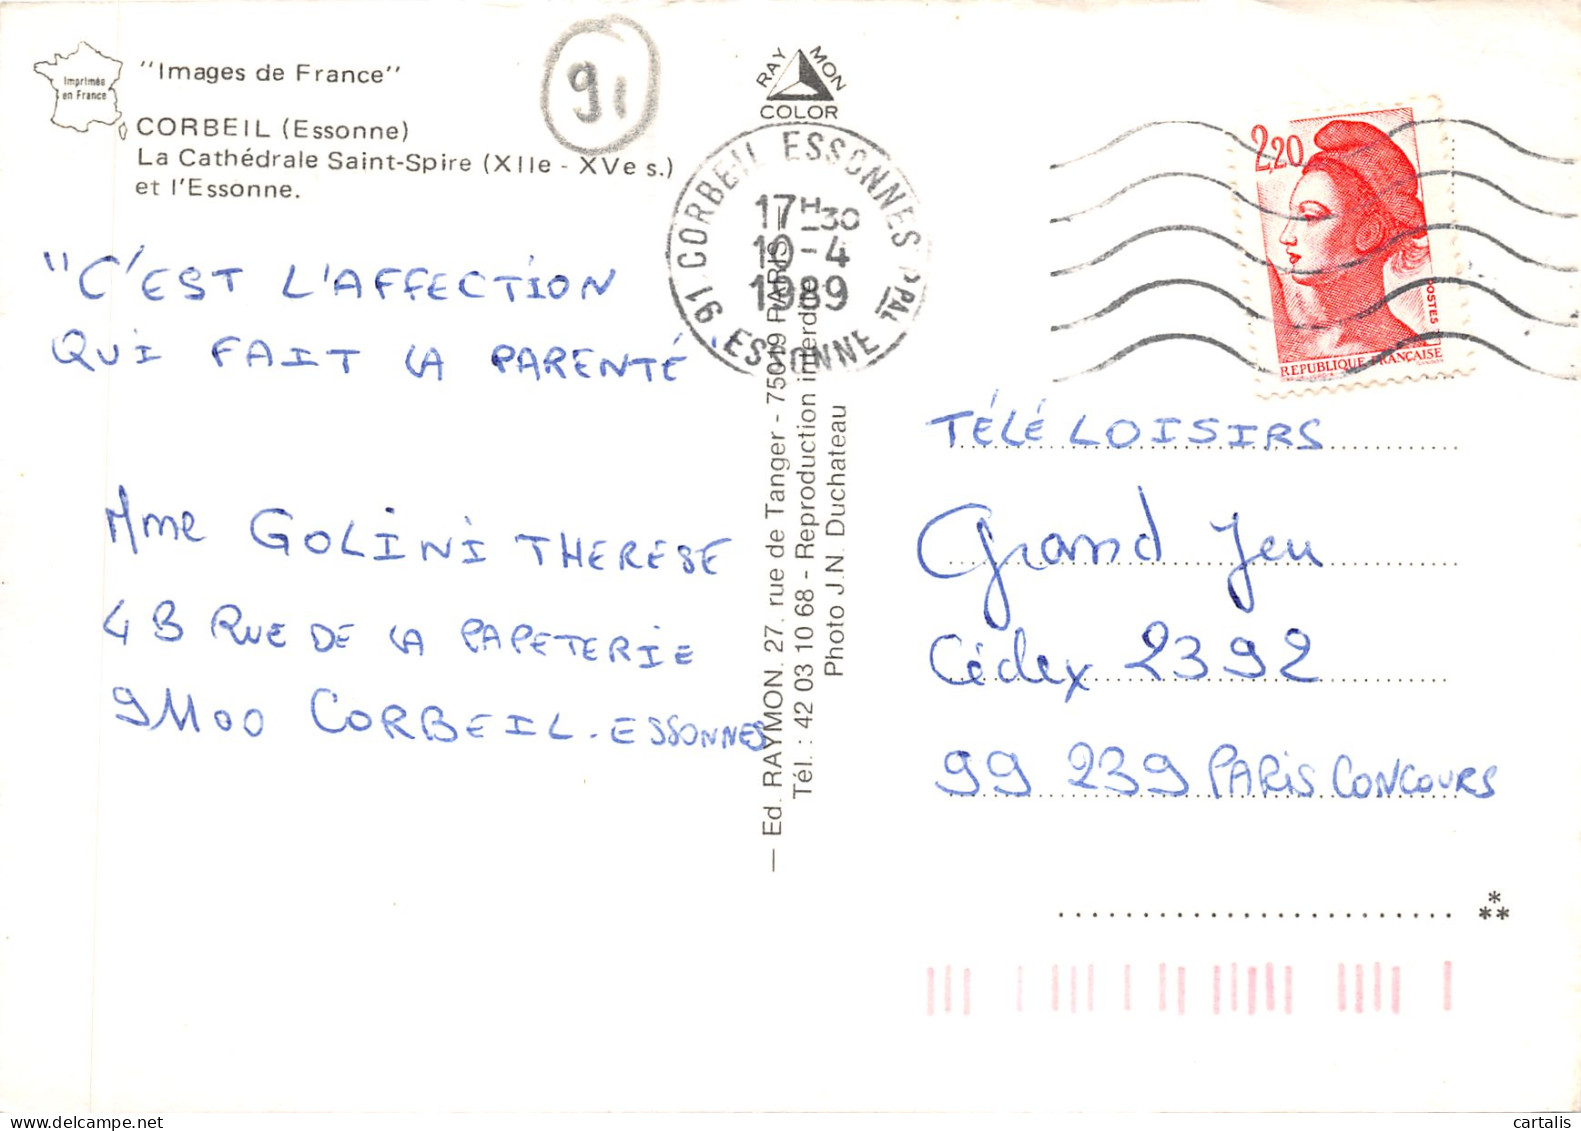 Imprimée
en France
"Images de France"
CORBEIL (Essonne)
La Cathédrale Saint-Spire (XIIe - XVe s.)
et l'Essonne.
91
RAYMON
COLOR
91 CORBEIL ESSONNES PPAL
17H30
10-4
1989
ESSONNE
2,20
POSTES
REPUBLIQUE FRANÇAISE
"C'EST L'AFFECTION
QUI FAIT LA PARENTÉ"
Mme GOLINI THERESE
4B RUE DE LA PAPETERIE
91100 CORBEIL-ESSONNES
— Ed. RAYMON. 27. rue de Tanger - 75019 PARIS
Tél. : 42 03 10 68 - Reproduction interdite
Photo J.N. Duchateau
TÉLÉ LOISIRS
Grand Jeu
Cédex 2392
99 239 PARIS CONCOURS
***
cartalis